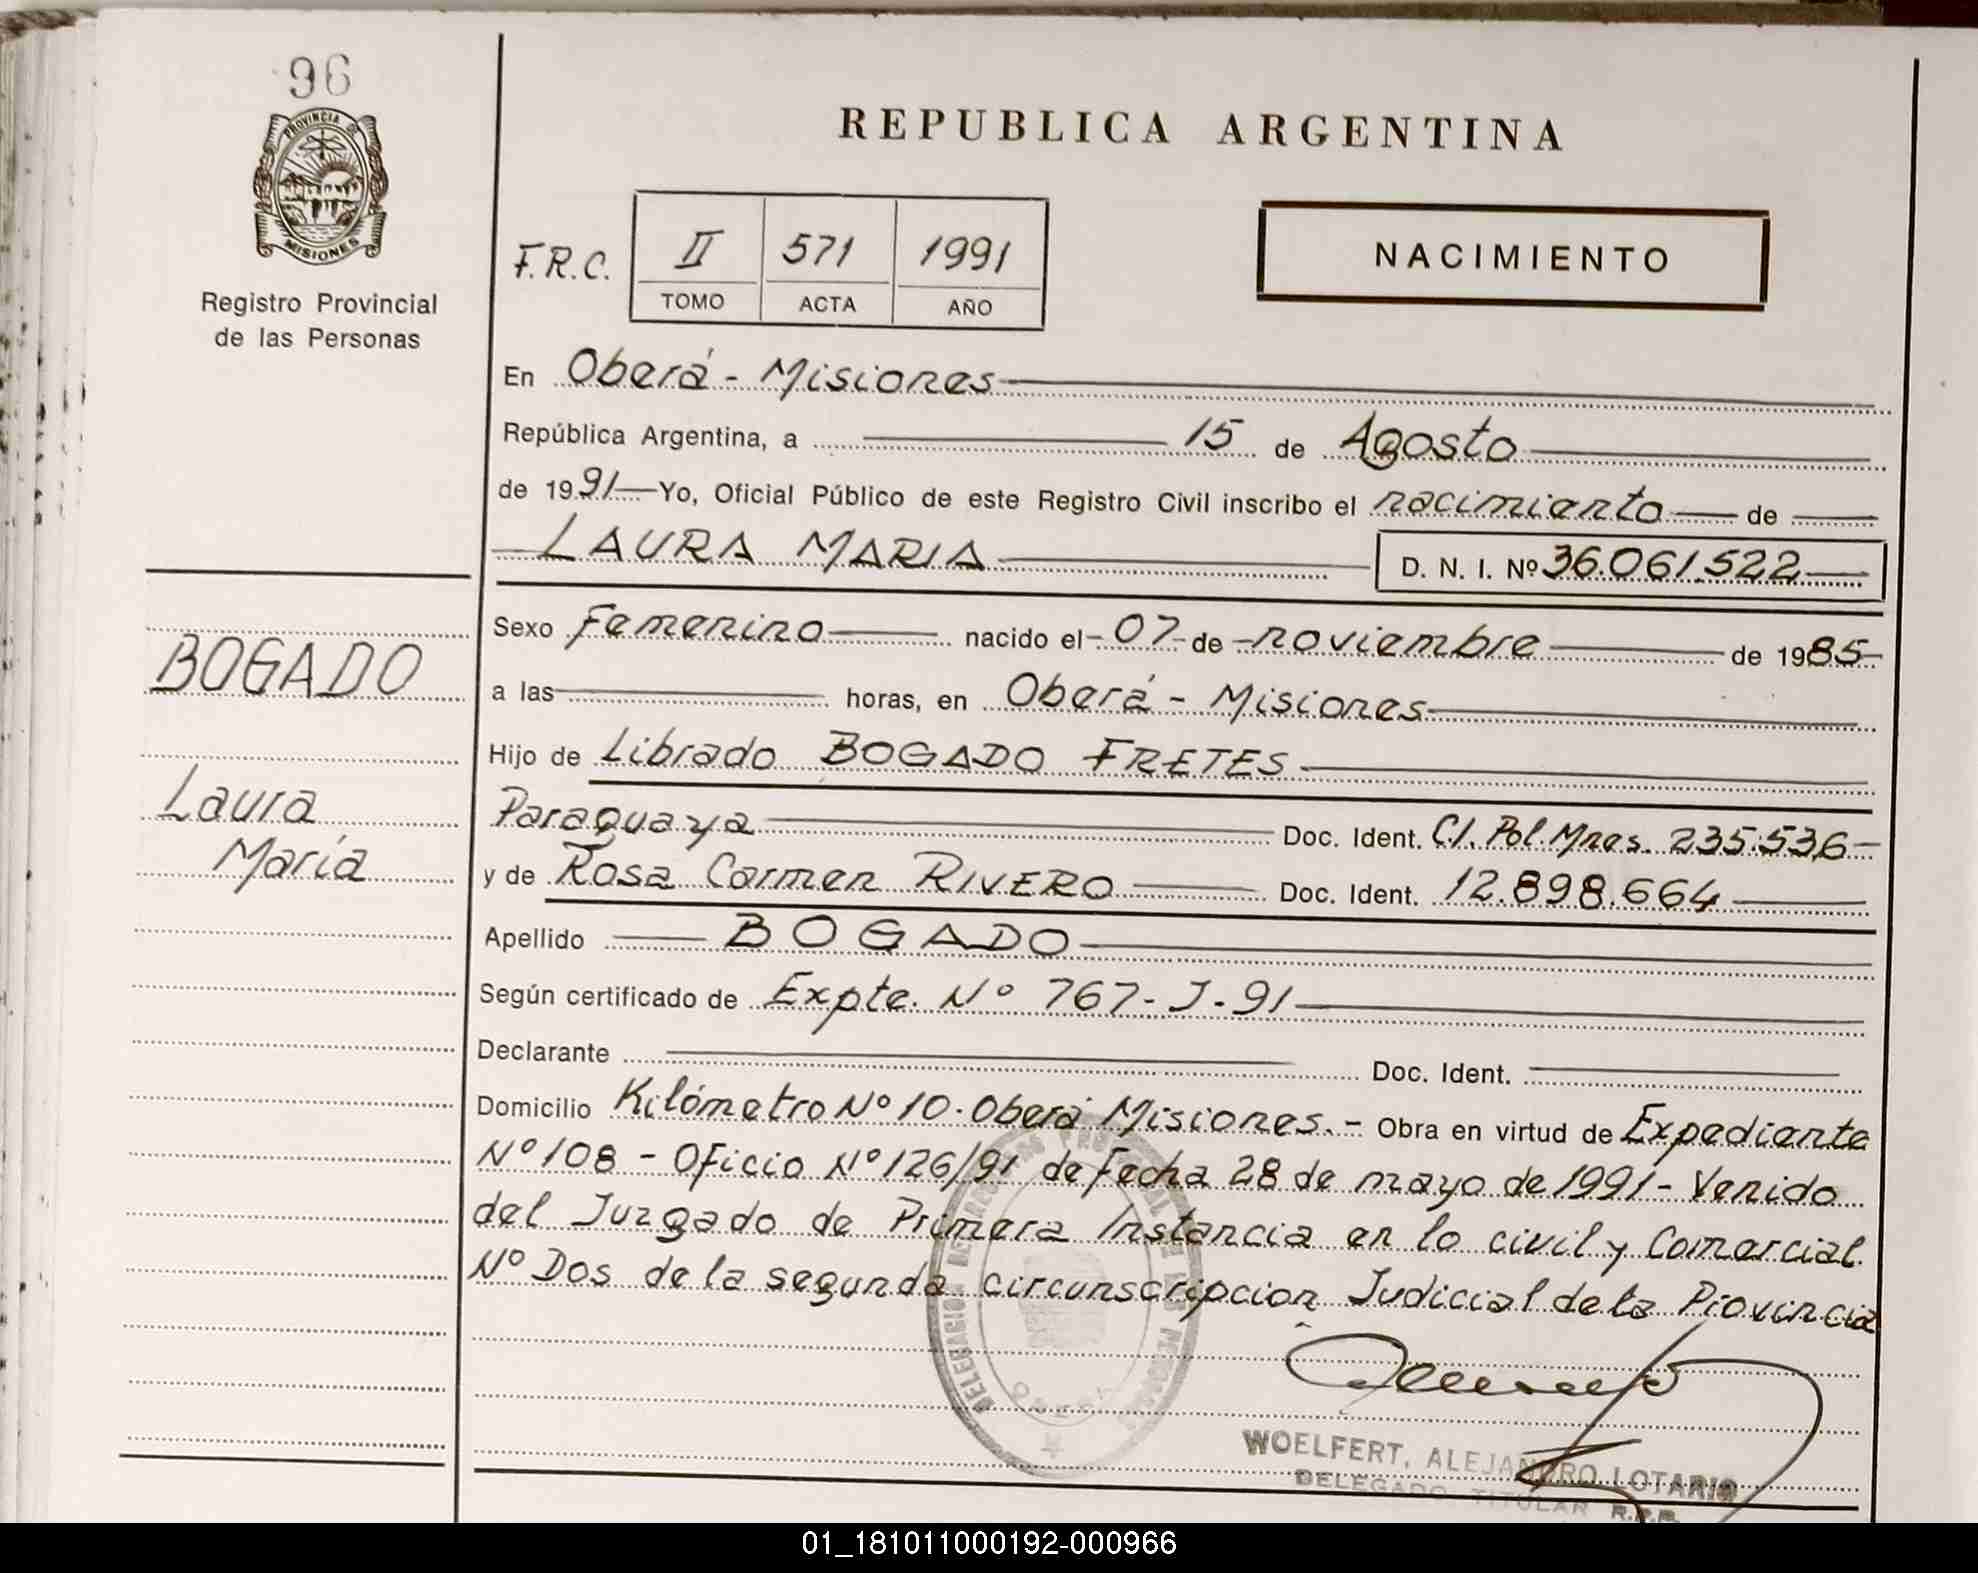 96
PROVINCIA DE
MISIONES
Registro Provincial
de las Personas
REPUBLICA ARGENTINA
F.R.C. II 571 1991
TOMO ACTA AÑO
NACIMIENTO
En Oberá - Misiones
República Argentina, a 15 de Agosto
de 1991 Yo, Oficial Público de este Registro Civil inscribo el nacimiento de
LAURA MARIA D. N. I. Nº 36.061.522
BOGADO
Laura
María
Sexo Femenino nacido el 07 de noviembre de 1985
a las horas, en Oberá - Misiones
Hijo de Librado BOGADO FRETES
Paraguaya Doc. Ident. C.I. Pol. Mnes. 235.536
y de Rosa Carmen RIVERO Doc. Ident. 12.898.664
Apellido BOGADO
Según certificado de Expte. Nº 767-J-91
Declarante Doc. Ident.
Domicilio Kilómetro Nº 10. Oberá Misiones. - Obra en virtud de Expediente
Nº 108 - Oficio Nº 126/91 de fecha 28 de mayo de 1991 - Venido
del Juzgado de Primera Instancia en lo civil y Comercial
Nº Dos de la segunda circunscripcion Judicial de la Provincia
WOELFERT, ALEJANDRO LOTARIO
DELEGADO TITULAR R.P.P.
01_181011000192-000966